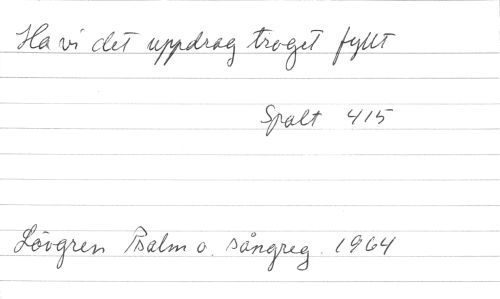 Ha vi det uppdrag troget fyllt
Spalt 415
Lövgren Psalm o. sångreg. 1964